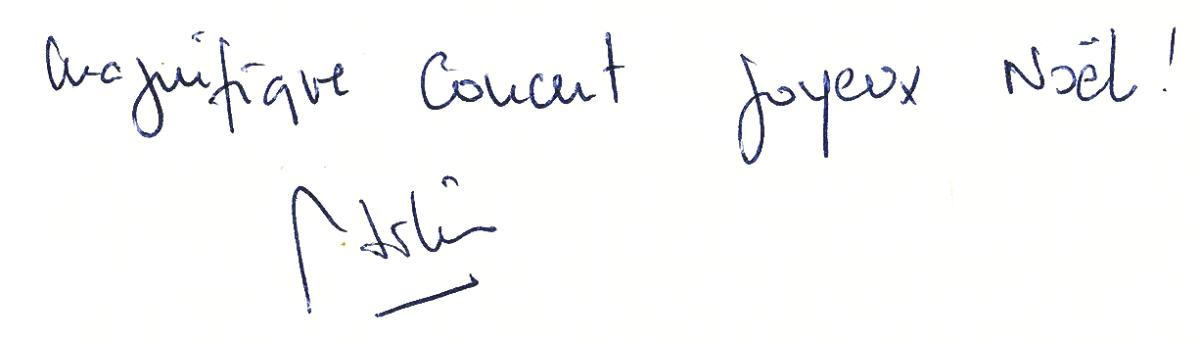 magnifique Concert Joyeux Noël !